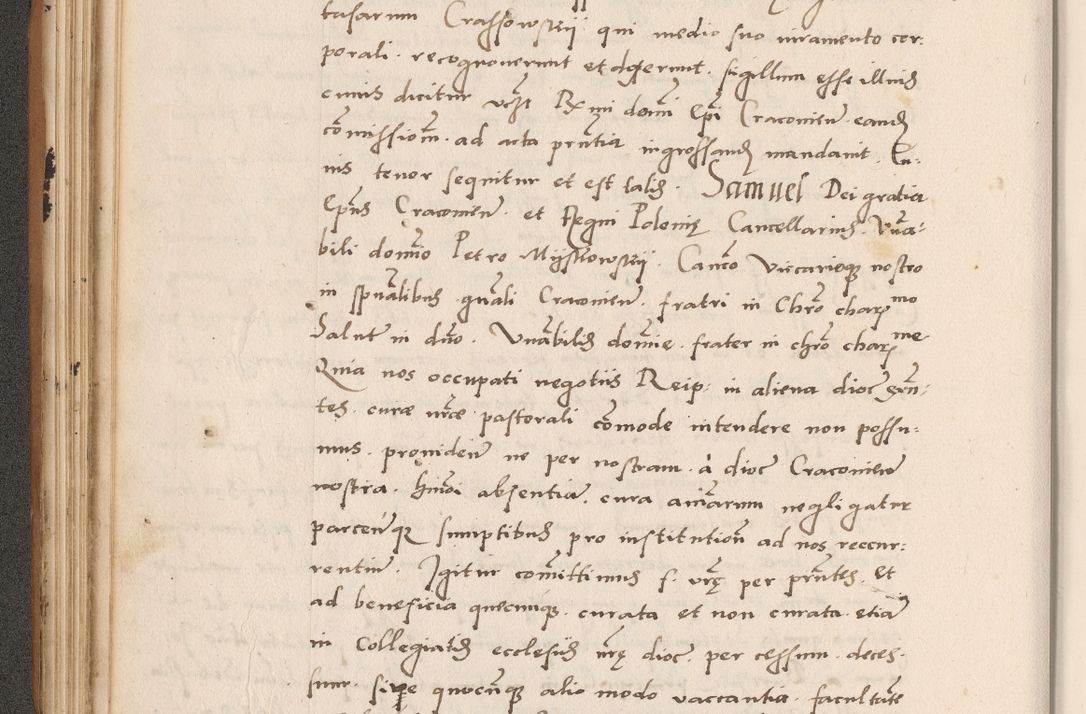 tusarum Crassowskij qui medio suo iuramento cor:
porali recognoverunt et dixerunt sigillum esse illius
cuius dicitur vczt Rx̃mi domi Epi Cracovien̄ eandē
cōmissionē ad acta prn̄tia ingrossandū mandavit Cu:
ius tenor sequitur et est talis. Samuel Dei gratia
Epūs Cracovien̄ et Regni Polonię Cancellarius. Vn̄a:
bili domino Petro Mijskowskij Canco Vicarioque nostro
in spūalibus gn̄ali Cracovien̄ fratri in Chrō char^mo
Salutē in dn̄o. Vn̄abilis domine frater in chrō char^me
Quia nos occupati negotiis Reip: in aliena dioc̄ exn̄:
tes curæ nr̄æ pastorali cōmode intendere non possu:
mus providen̄ ne per nostram à dioc̄ Cracovien̄
nostra hm̄oi absentiā cura aīarum negligatur
parcen̄que sumptibus pro institutionē ad nos recur:
rentiū. Igitur comittimus f. vrę per prn̄tes Et
ad beneficia quecunque curata et non curata etiā
in Collegiatis ecclesiis nr̄ę dioc̄ per cessum deces:
sum sive quocunque alio modo vaccantia facultatē